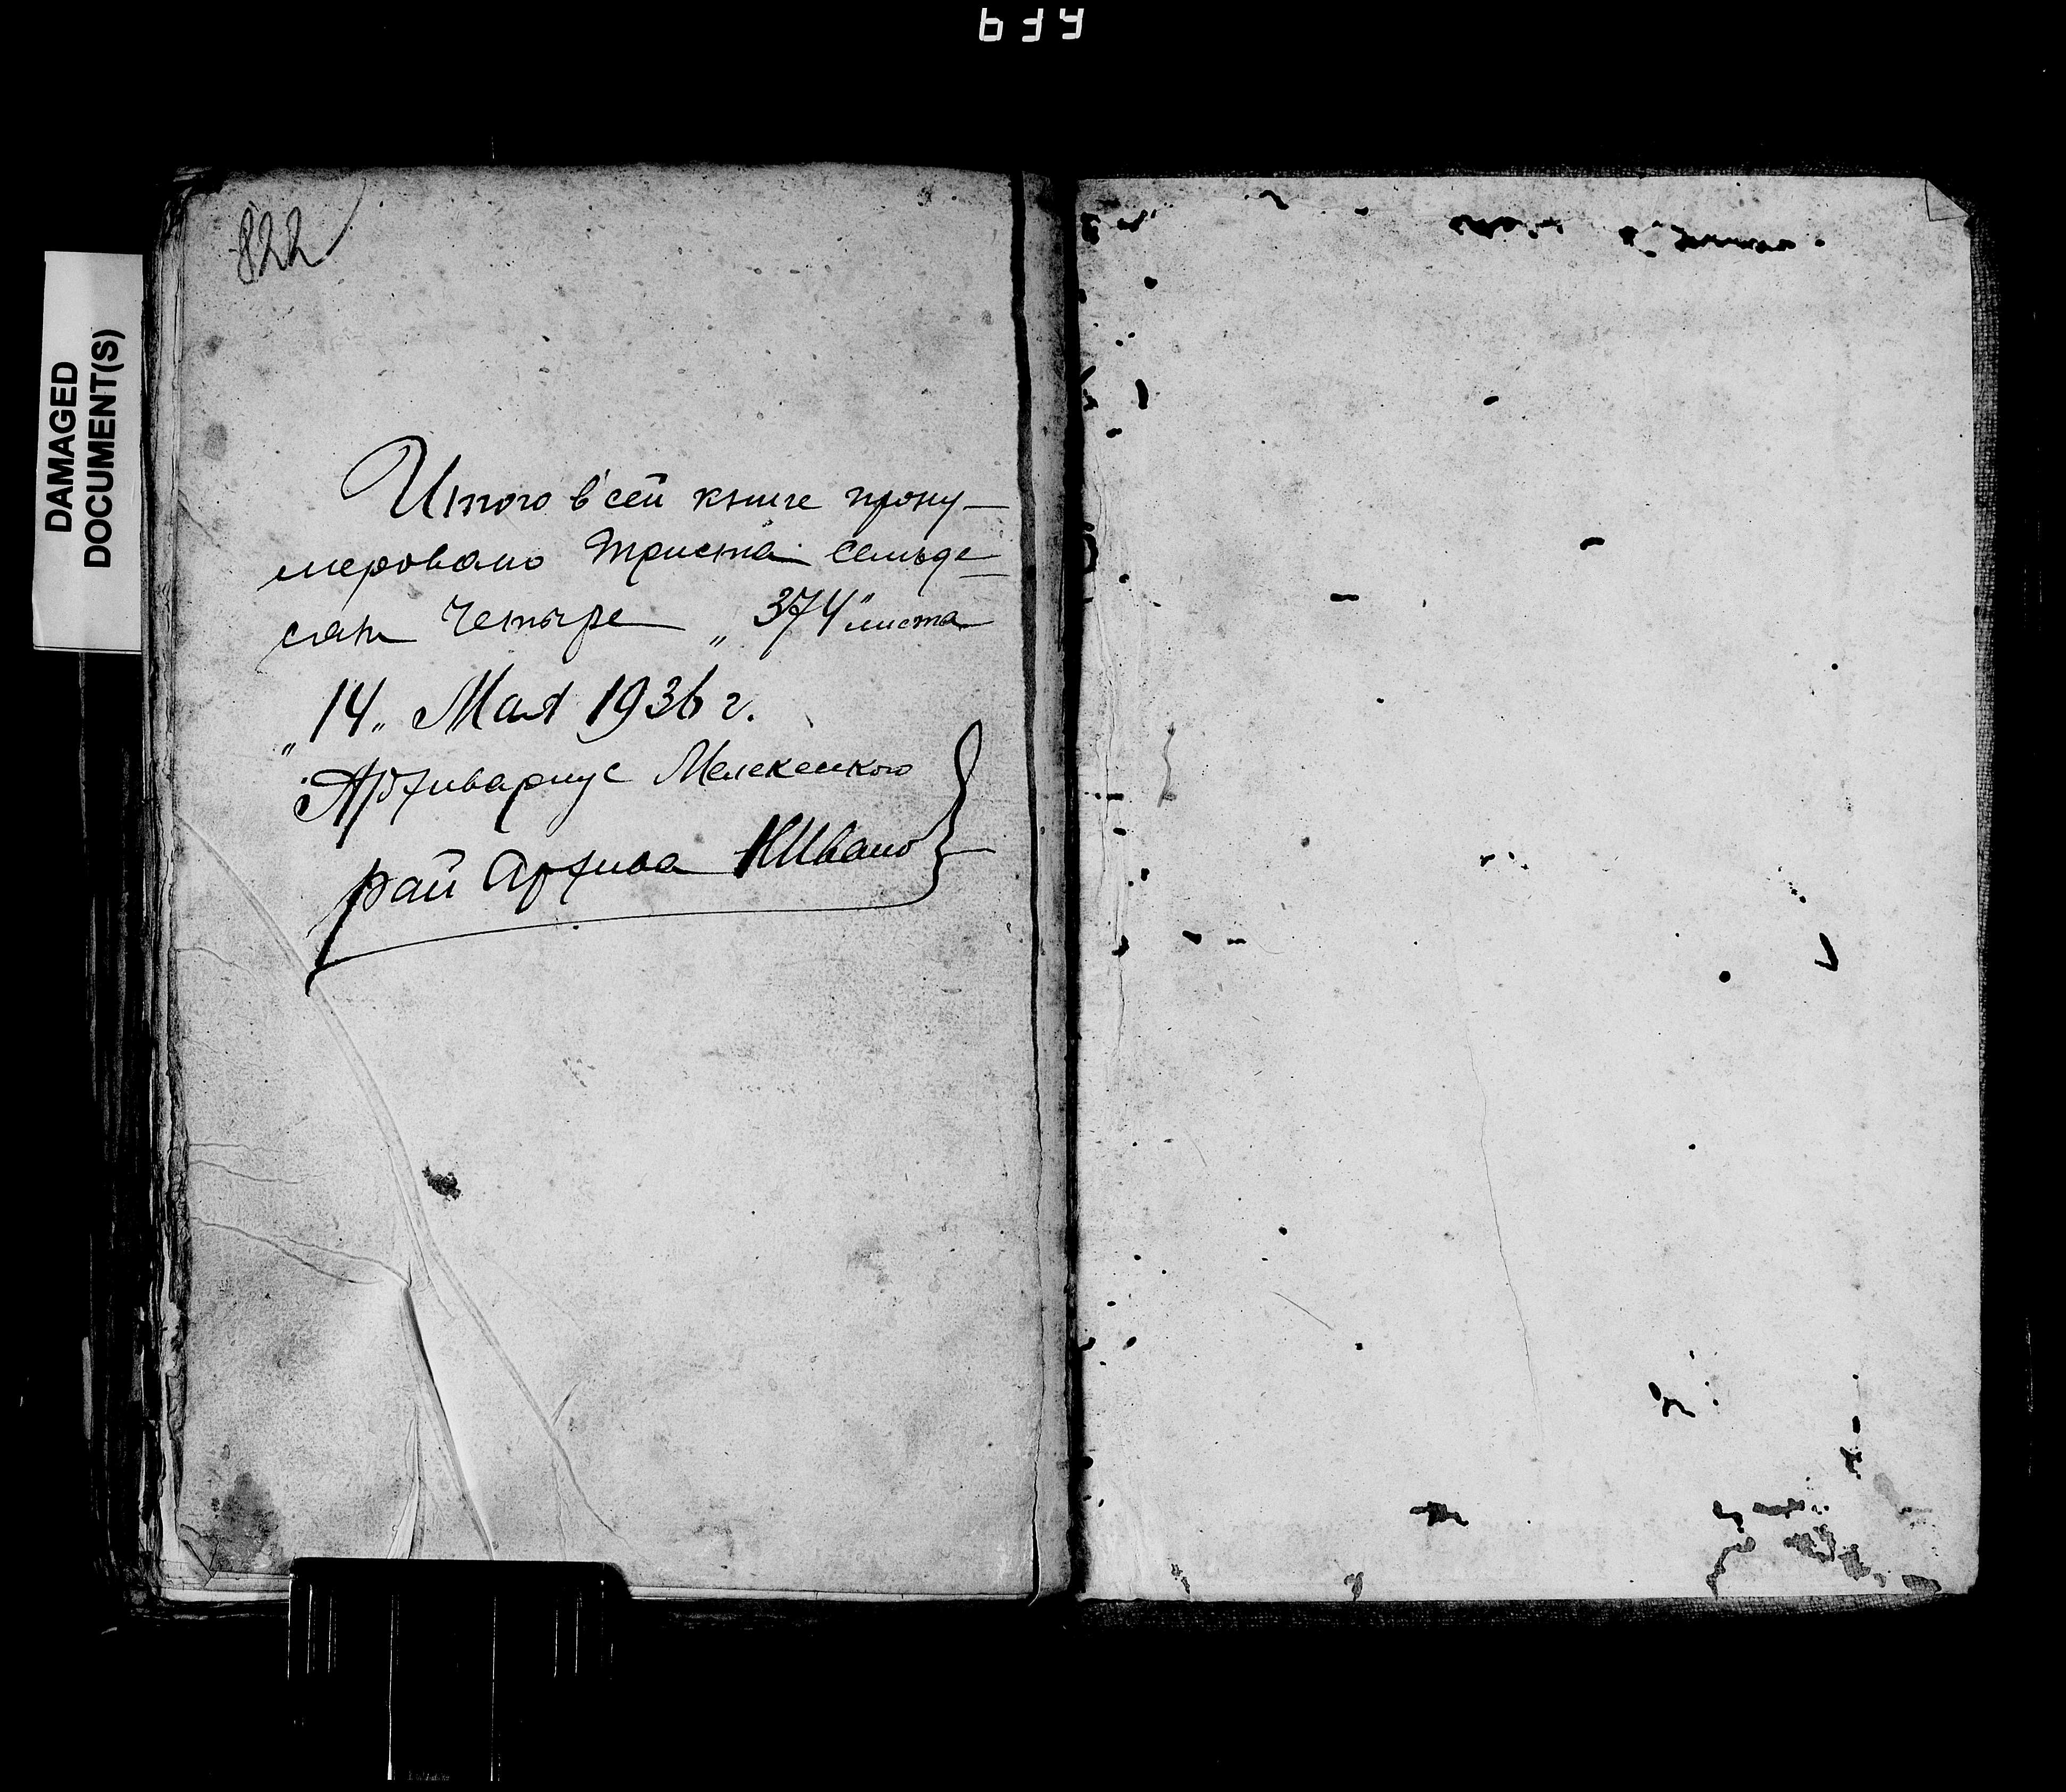 822
DAMAGED
DOCUMENT(S)
Итого в сей книге прону-
меровано триста семьде=
сят четыре „374" листа
„14„ Мая 1936 г.
Архивариус Мелекесского
рай Архива НИвано